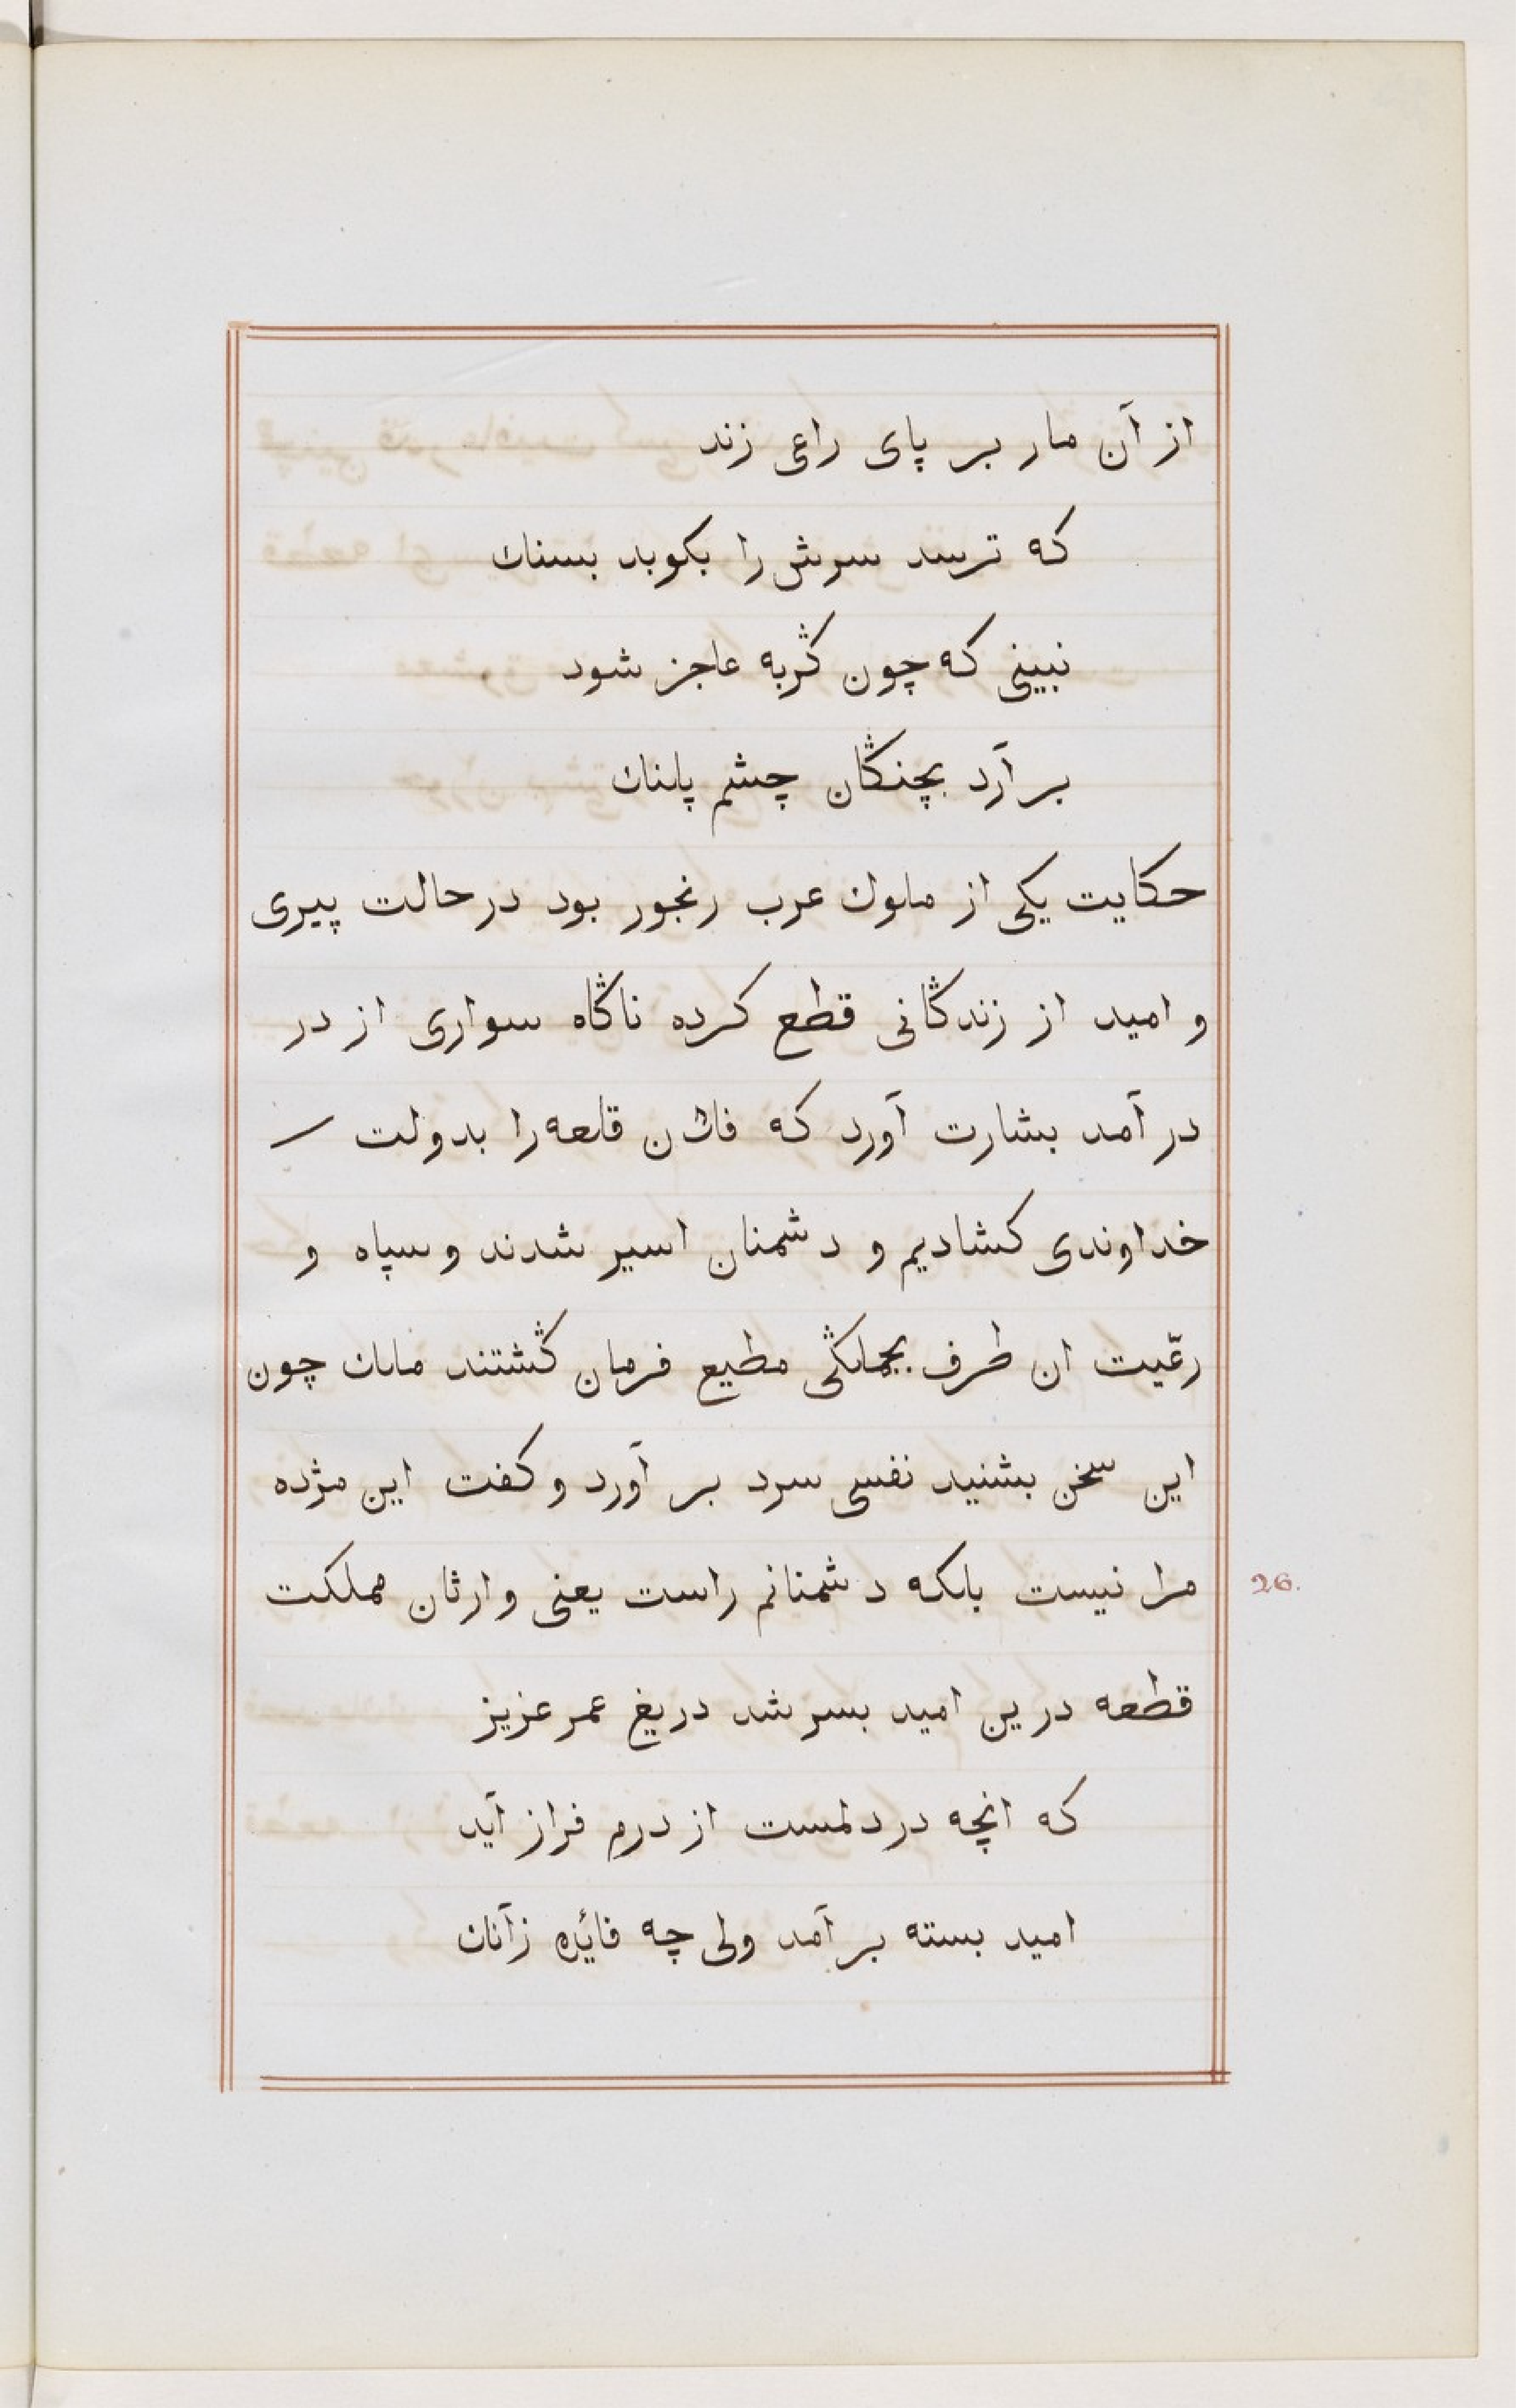 از آن مار بر پای راعی زند
که ترسد سرش را بکوبد بسنك
نبینی که چون گربه عاجز شود
بر آرد بچنگان چشم پلنك
حکایت یکی از ملوك عرب رنجور بود در حالت پیری
و امید از زندگانی قطع کرده ناگاه سواری از در
در آمد بشارت آورد که فلان قلعه را بدولت
خداوندی کشادیم و دشمنان اسیر شدند و سپاه و
رعّیت ان طرف بجملگی مطیع فرمان گشتند ملك چون
این سخن بشنید نفسی سرد بر آورد و کفت این مژده
مرا نیست بلکه دشمنانم راست یعنی وارثان مملکت
26.
قطعه درین امید بسر شد دریغ عمر عزیز
که انچه در دلمست از درم فراز آید
امید بسته بر آمد ولی چه فائده زآنك